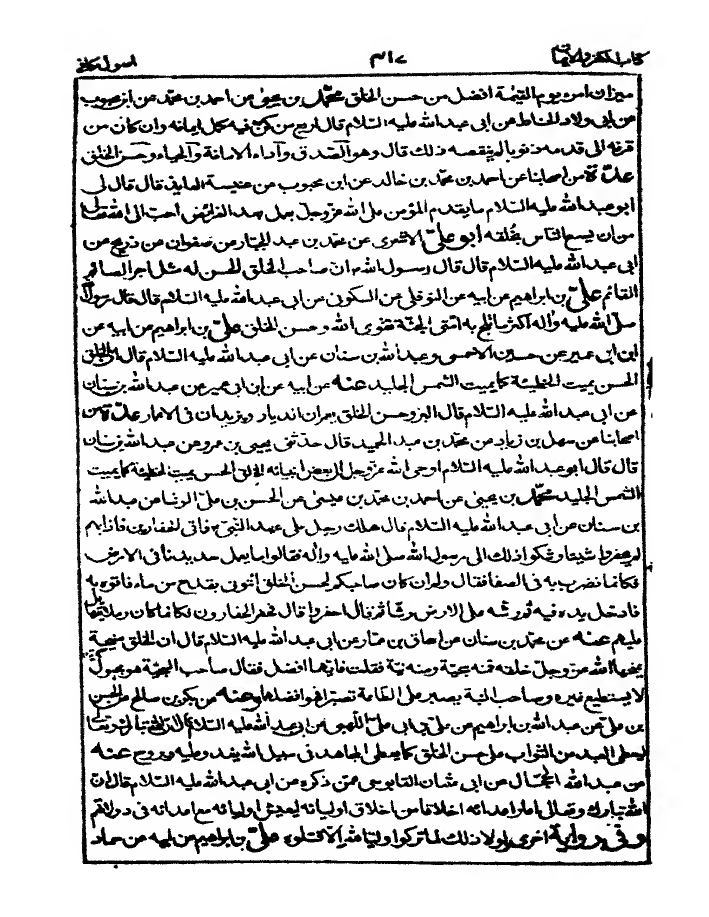 كتاب الكفر والايمان ٣١٠ اصول كافى
ميزان امرء يوم القيمة افضل من حسن الخلق محمد بن يحيى عن احمد بن محمد عن ابن محبوب
عن ابى ولاد الحناط عن ابى عبد الله عليه السلام قال اربع من كن فيه كمل ايمانه وان كان من
قرنه الى قدمه ذنوبا لم ينقصه ذلك قال وهو الصدق وآداء الامانة والحياء وحسن الخلق
عدة من اصحابنا عن احمد بن محمد بن خالد عن ابن محبوب عن عنبسة العابد قال قال لى
ابو عبد الله عليه السلام ما يقدم المؤمن على الله عز وجل بعمل بعد الفرائض احب الى الله تعالى
من ان يسع الناس بخلقه ابو على الاشعرى عن محمد بن عبد الجبار عن صفوان عن ذريح عن
ابى عبد الله عليه السلام قال قال رسول الله ان صاحب الخلق الحسن له مثل اجر الصائم
القائم على بن ابراهيم عن ابيه عن النوفلى عن السكونى عن ابى عبد الله عليه السلام قال قال رسول الله
صلى الله عليه وآله اكثر ما تلج به امتى الجنة تقوى الله وحسن الخلق على بن ابراهيم عن ابيه عن
ابن ابى عمير عن حسين الاحمسى وعبد الله بن سنان عن ابى عبد الله عليه السلام قال ان الخلق
الحسن يميث الخطيئة كما يميث الشمس الجليد عنه عن ابيه عن ابن ابى عمير عن عبد الله بن سنان
عن ابى عبد الله عليه السلام قال البر وحسن الخلق يعمران الديار ويزيدان فى الاعمار عدة من
اصحابنا عن سهل بن زياد عن محمد بن عبد الحميد قال حدثنى يحيى بن عمرو عن عبد الله بن سنان
قال قال ابو عبد الله عليه السلام اوحى الله عز وجل الى بعض انبيائه الخلق الحسن يميث الخطيئة كما يميث
الشمس الجليد محمد بن يحيى عن احمد بن محمد بن عيسى عن الحسن بن على الوشا عن عبد الله
بن سنان عن ابى عبد الله عليه السلام قال هلك رجل على عهد النبى ص فاتى الحفارين فاذا بهم
لم يحفروا شيئا وشكوا ذلك الى رسول الله صلى الله عليه وآله فقالوا ما يعمل حديدنا فى الارض
فكانما نضرب به فى الصفا فقال ولم ان كان صاحبكم لحسن الخلق ائتونى بقدح من ماء فاتوه به
فادخل يده فيه ثم رشه على الارض رشا ثم قال احفروا قال فحفر الحفارون فكانما كان رملا يتهايل
عليهم عنه عن محمد بن سنان عن اسحاق بن عمار عن ابى عبد الله عليه السلام قال ان الخلق منيحة
يمنحها الله عز وجل خلقه فمنه سجية ومنه نية فقلت فايتهما افضل فقال صاحب السجية هو مجبول
لا يستطيع غيره وصاحب النية يصبر على الطاعة تصبرا فهو افضلهما وعنه عن بكر بن صالح عن الحسن
بن على عن عبد الله بن ابراهيم عن على بن ابى على اللهبى عن ابى عبد الله عليه السلام قال ان الله تبارك وتعالى
ليعطى العبد من الثواب على حسن الخلق كما يعطى المجاهد فى سبيل الله يغدو عليه ويروح عنه
عن عبد الله الحجال عن ابى عثمان القابوسى عمن ذكره عن ابى عبد الله عليه السلام قال ان
الله تبارك وتعالى اعار اعدائه اخلاقا من اخلاق اوليائه ليعيش اوليائه مع اعدائه فى دولاتهم
وفى رواية اخرى ولولا ذلك لما تركوا وليا لله الا قتلوه على بن ابراهيم عن ابيه عن حماد